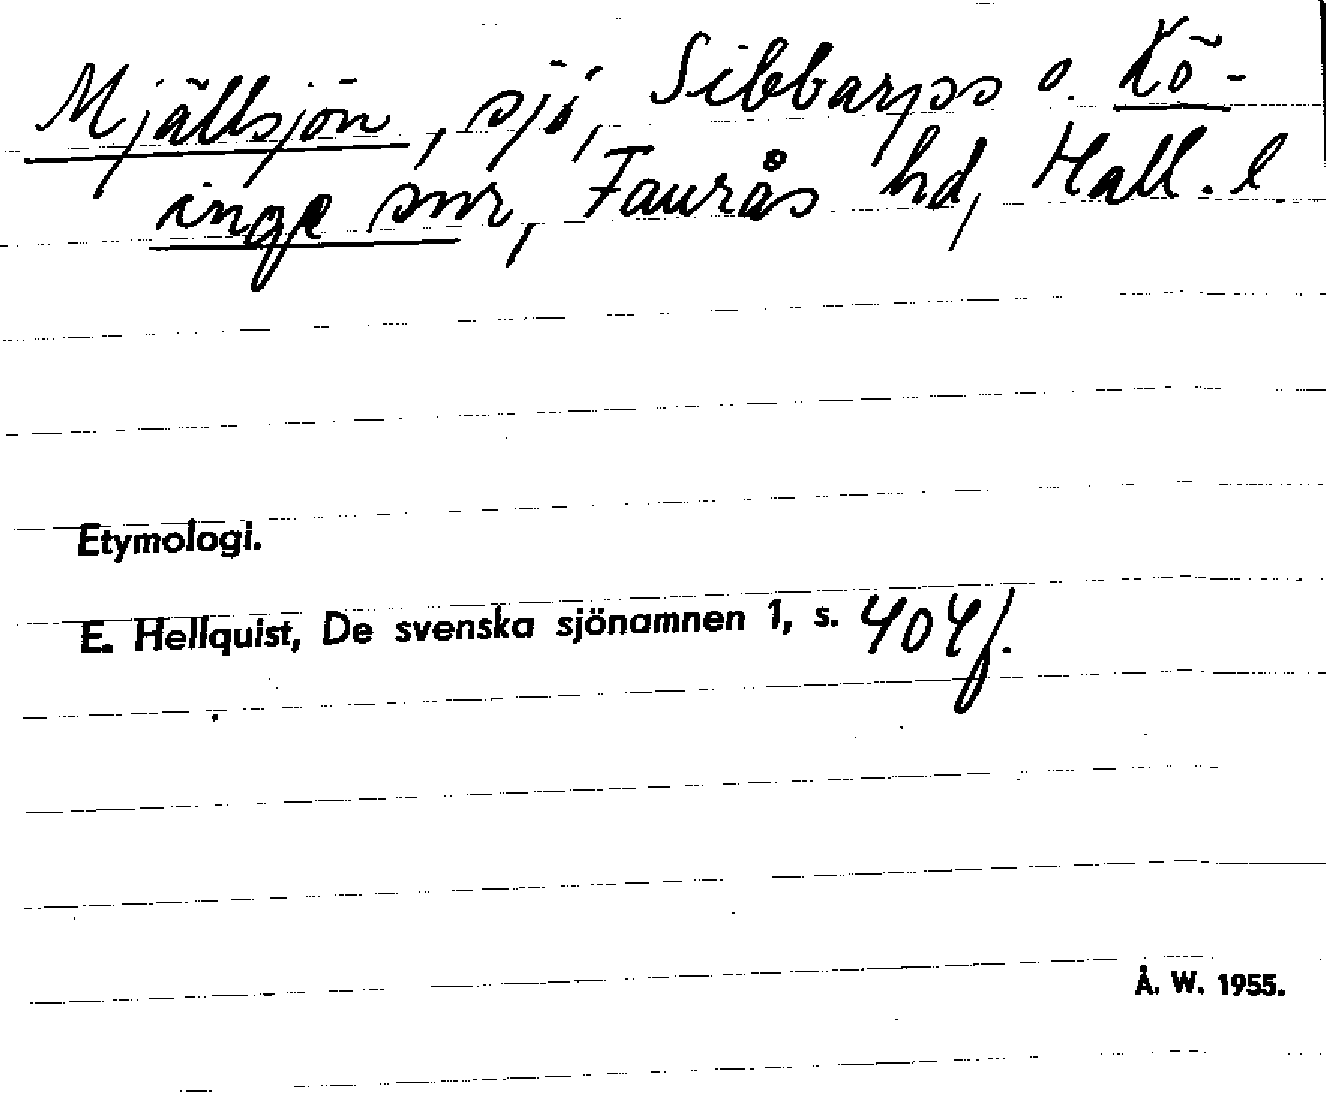 Mjällsjön, sjö, Sibbarps o. Kö-
inge snr, Faurås hd, Hall. l
Etymologi.
E. Hellquist, De svenska sjönamnen 1, s. 404f.
Å. W. 1955.